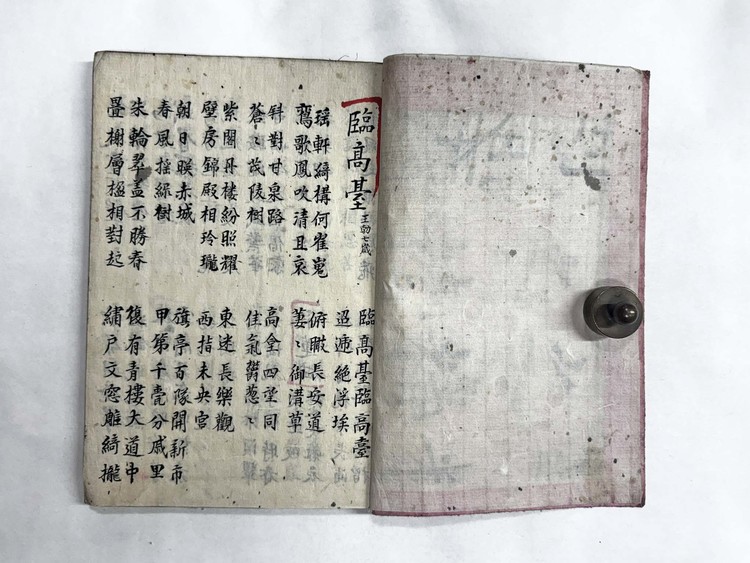 臨髙臺 王勃七歲
臨髙臺臨高臺
迢遞絕浮埃
瑶軒綺構何崔嵬
鸞歌鳳吹清且哀
俯瞰長安道
萋〻御溝草
斜對甘泉路
蒼〻茂陵樹
高臺四望同
佳氣鬱葱〻
紫閣丹楼紛照耀
璧房錦殿相玲瓏
東迷長樂觀
西指未央宮
朝日映赤城
春風摇綠樹
旗亭百隊開新市
甲第千甍分戚里
朱輪翠盖不勝春
疊榭層楹相對起
復有青樓大道中
繡户文窓雕綺攏